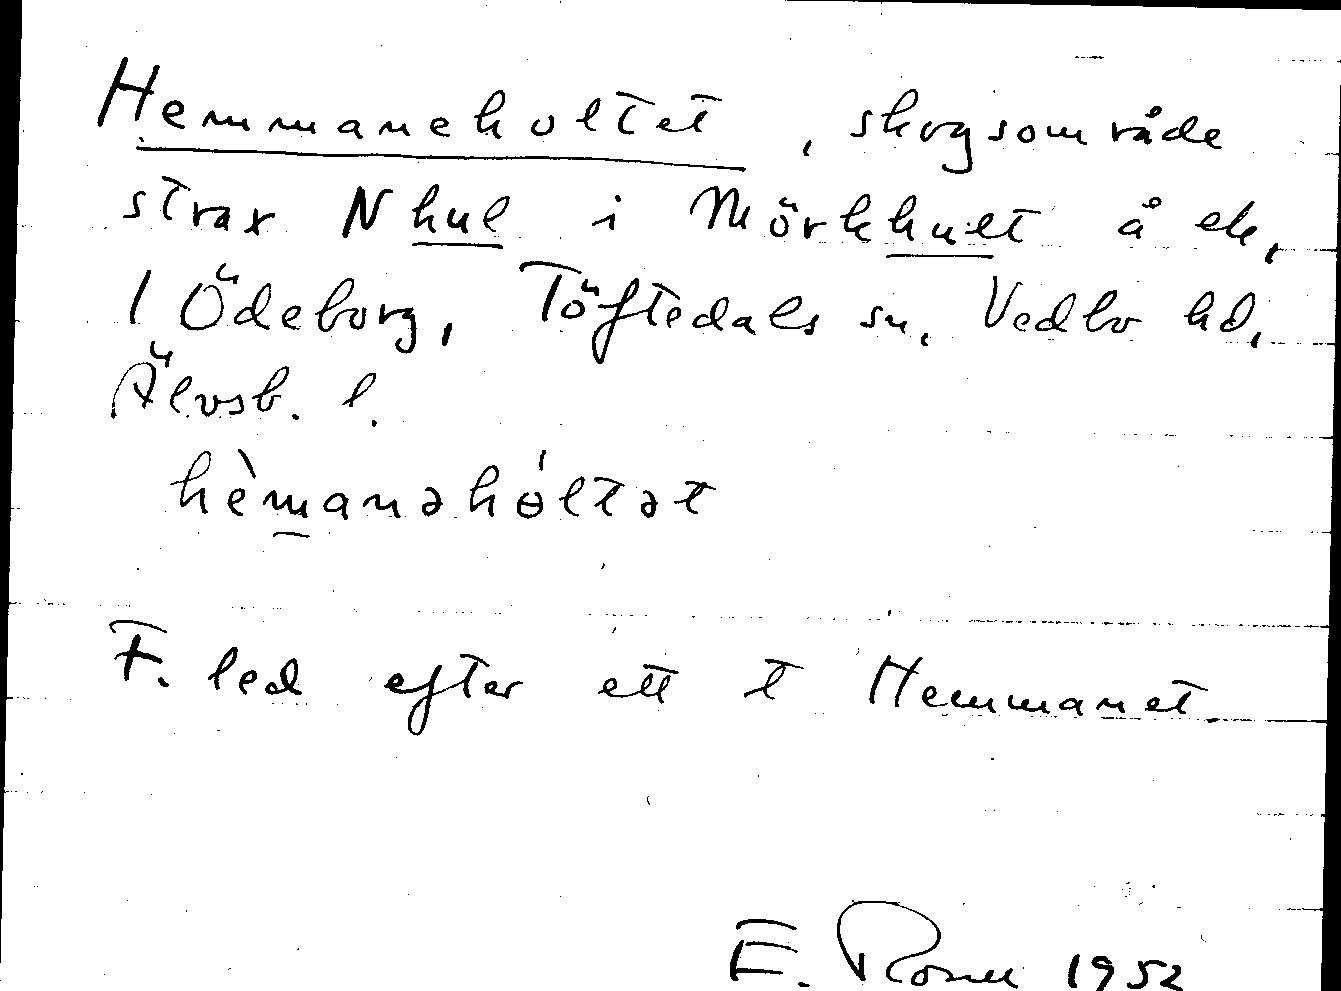 Hemmaneholtet, skogsområde
strax N hul i Mörkhult å ek.
1 Ödeborg, Töftedals sn, Vedbo hd,
Älvsb. l.
hèmanəhɵ́ltət
F. led efter ett t Hemmanet.
E. Rosell 1952